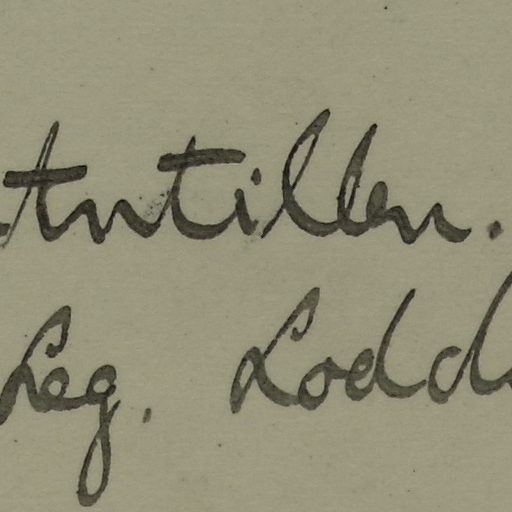 Antillen.
Leg. Lodd